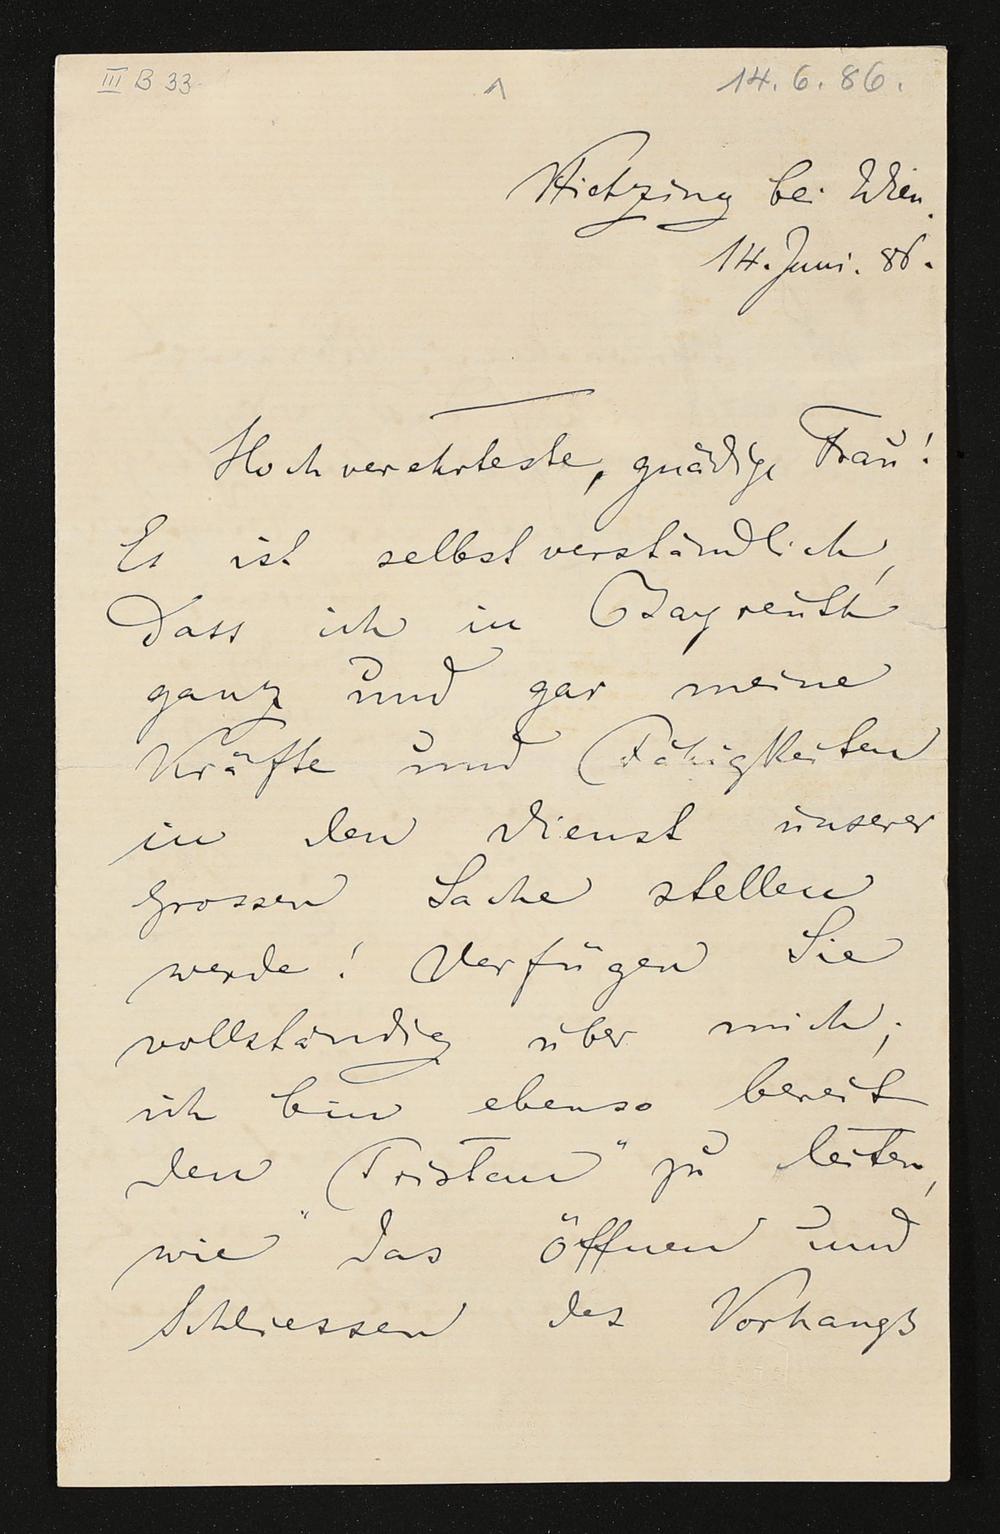 III B 33
1
14. 6. 86.
Hietzing bei Wien.
14. Juni. 86.
Hochverehrteste, gnädige Frau!
Es ist selbstverständlich,
dass ich in Bayreuth
ganz und gar meine
Kräfte und Fähigkeiten
in den Dienst unserer
grossen Sache stellen
werde! Verfügen Sie
vollständig über mich;
ich bin ebenso bereit
den „Tristan" zu leiten,
wie das Öffnen und
Schliessen des Vorhangs